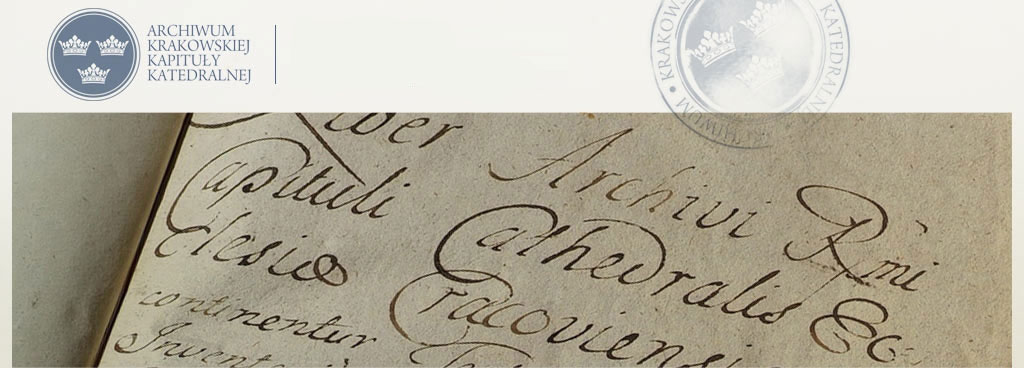 ARCHIWUM
KRAKOWSKIEJ
KAPITUŁY
KATEDRALNEJ
KRAKOW
KATEDRALNE
ARCHIWUM
Liber Archivi Rmi
Capituli Cathedralis Ec
clesiæ Cracoviensi
continentur
Invent